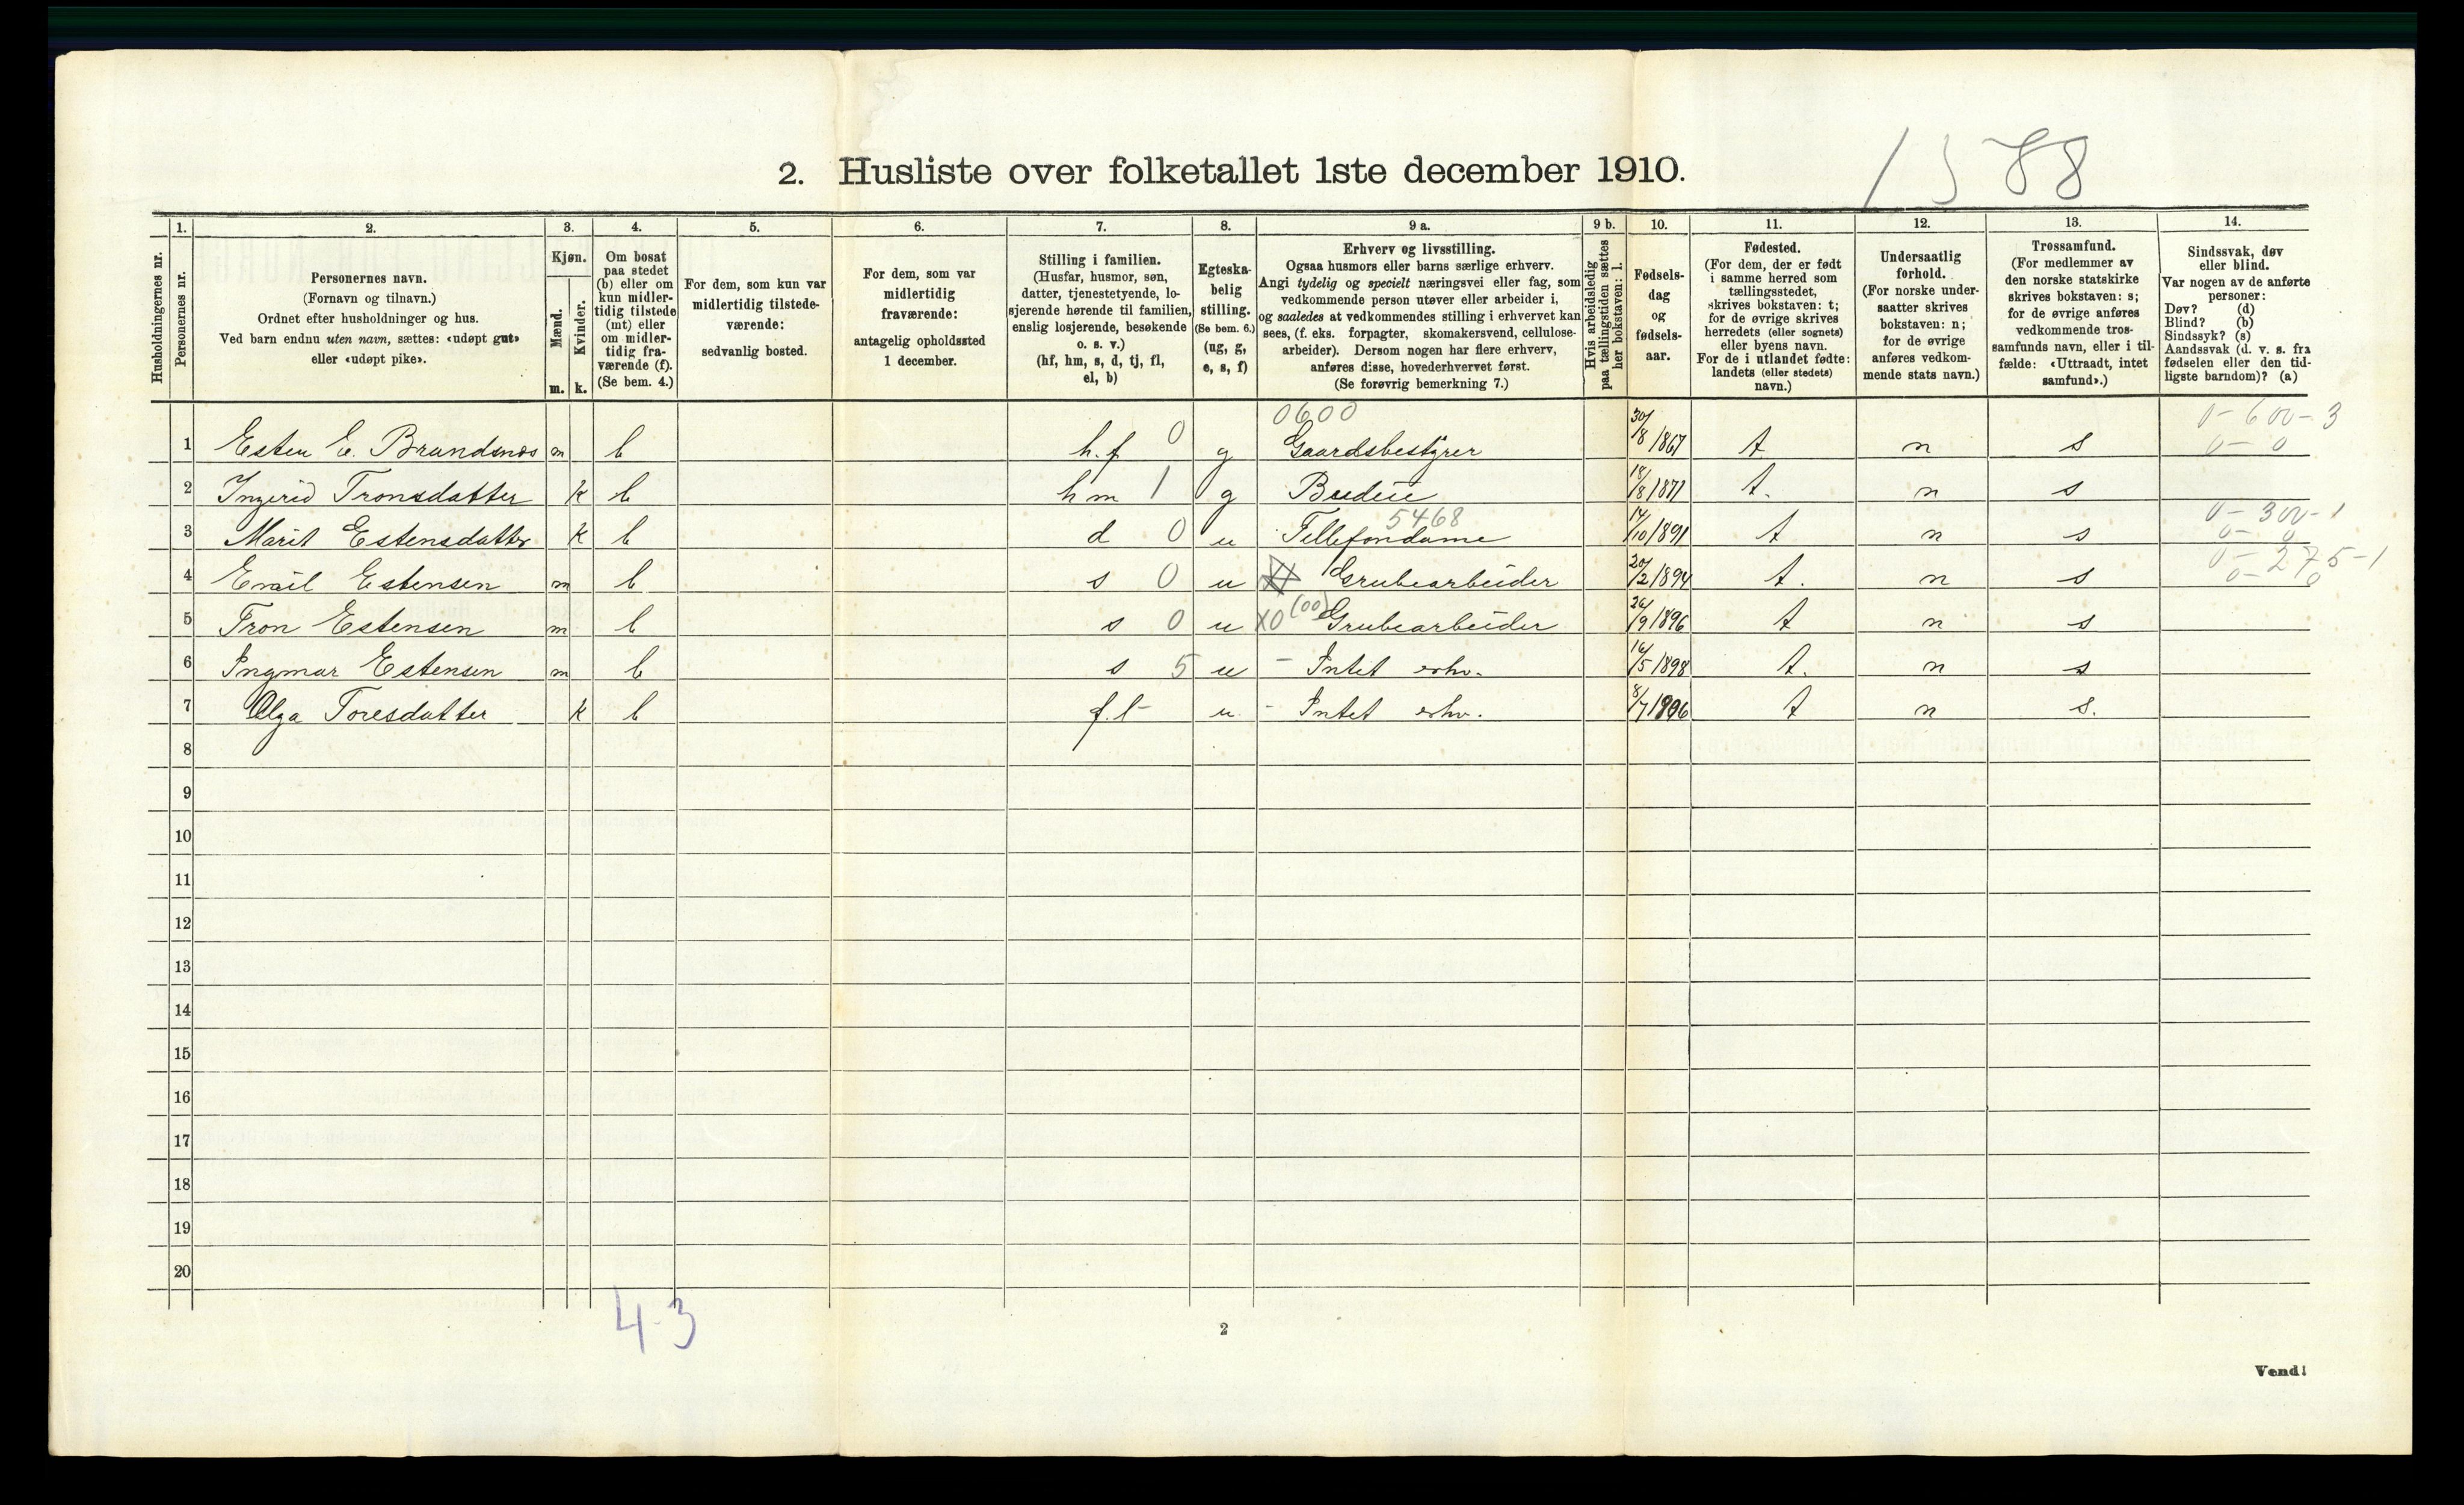 1588
2. Husliste over folketallet 1ste december 1910.
Husholdningernes nr.
1.
Personernes nr.
2.
Personernes navn.
(Fornavn og tilnavn.)
Ordnet efter husholdninger og hus.
Ved barn endnu uten navn, sættes: «udøpt gut»
eller «udøpt pike».
3.
Kjøn.
Mænd.
Kvinder.
m. k.
4.
Om bosat
paa stedet
(b) eller om
kun midler-
tidig tilstede
(mt) eller
om midler-
tidig fra-
værende (f).
(Se bem. 4.)
5.
For dem, som kun var
midlertidig tilstede-
værende:
sedvanlig bosted.
6.
For dem, som var
midlertidig
fraværende:
antagelig opholdssted
1 december.
7.
Stilling i familien.
(Husfar, husmor, søn,
datter, tjenestetyende, lo-
sjerende hørende til familien,
enslig losjerende, besøkende
o. s. v.)
(hf, hm, s, d, tj, fl,
el, b)
8.
Egteska-
belig
stilling.
(Se bem. 6.)
(ug, g,
e, s, f)
9 a.
Erhverv og livsstilling.
Ogsaa husmors eller barns særlige erhverv.
Angi tydelig og specielt næringsvei eller fag, som
vedkommende person utøver eller arbeider i,
og saaledes at vedkommendes stilling i erhvervet kan
sees, (f. eks. forpagter, skomakersvend, cellulose-
arbeider). Dersom nogen har flere erhverv,
anføres disse, hovederhvervet først.
(Se forøvrig bemerkning 7.)
9 b.
Hvis arbeidsledig
paa tællingstiden sættes
her bokstaven: l.
10.
Fødsels-
dag
og
fødsels-
aar.
11.
Fødested.
(For dem, der er født
i samme herred som
tællingsstedet,
skrives bokstaven: t;
for de øvrige skrives
herredets (eller sognets)
eller byens navn.
For de i utlandet fødte:
landets (eller stedets)
navn.)
12.
Undersaatlig
forhold.
(For norske under-
saatter skrives
bokstaven: n;
for de øvrige
anføres vedkom-
mende stats navn.)
13.
Trossamfund.
(For medlemmer av
den norske statskirke
skrives bokstaven: s;
for de øvrige anføres
vedkommende tros-
samfunds navn, eller i til-
fælde: «Uttraadt, intet
samfund».)
14.
Sindssvak, døv
eller blind.
Var nogen av de anførte
personer:
Døv? (d)
Blind? (b)
Sindssyk? (s)
Aandssvak (d. v. s. fra
fødselen eller den tid-
ligste barndom)? (a)
0600 0-600-3
1 Esten E. Brandsnes m b h.f 0 g Gaardsbestyrer 30/8 1867 t n s 0- 0
2 Ingerid Tronsdatter k b hm 1 g Budeie 18/8 1871 t. n s
5468 0-300-1
3 Marit Estensdatter k b d 0 u Tellefondame 14/10 1891 t n s 0- 0
0-275-1
4 Emil Estensen m b s 0 u Grubearbeider 20/2 1894 t. n s 0- 0
5 Tron Estensen m b s 0 u X0 (00) Grubearbeider 26/9 1896 t n s
6 Ingmar Estensen m b s 5 u - Intet erhv. 16/5 1898 t. n s
7 Olga Toresdatter k b f.l - u - Intet erhv. 8/7 1906 t n s.
8
9
10
11
12
13
14
15
16
17
18
19
20
4-3
2
Vend!